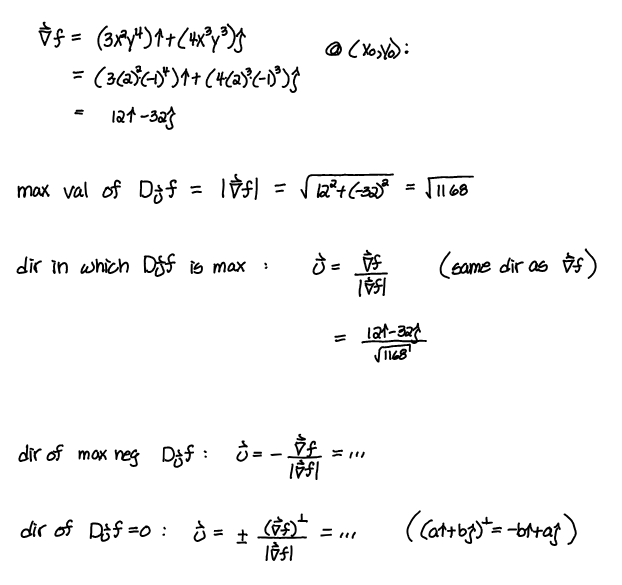 ∇⃗f = (3x²y⁴)î + (4x³y³)ĵ @ (x₀,y₀):
= (3(2)²(-1)⁴)î + (4(2)³(-1)³)ĵ
= 12î - 32ĵ
max val of D_u⃗ f = |∇⃗f| = √(12² + (-32)²) = √1168
dir in which D_u⃗ f is max : u⃗ = ∇⃗f / |∇⃗f| (same dir as ∇⃗f)
= (12î - 32ĵ) / √1168
dir of max neg D_u⃗ f : u⃗ = - ∇⃗f / |∇⃗f| = ...
dir of D_u⃗ f = 0 : u⃗ = ± (∇⃗f)^⊥ / |∇⃗f| = ... ((aî + bĵ)^⊥ = -bî + aĵ)